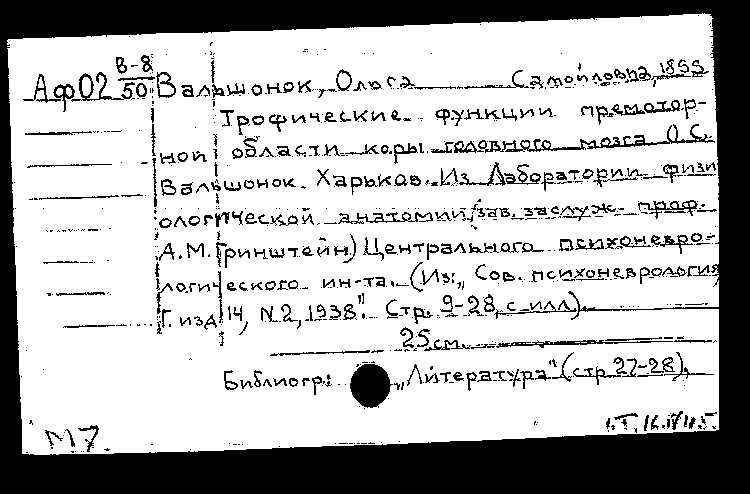 В-8
Аф02 50 Вальшонок, Ольга Самойловна, 1899
Трофические функции премотор-
ной области коры головного мозга О.С.
Вальшонок. Харьков. Из Лаборатории физи
ологической анатомии, (зав. заслуж. проф.
А.М. Гринштейн) Центрального психоневро-
логического ин-та. (Из: „Сов. психоневрология
Г. изд 14, N2, 1938". Стр. 9-28, с илл).
25 см.
Библиогр: „Литература" (стр 27-28).
М7.